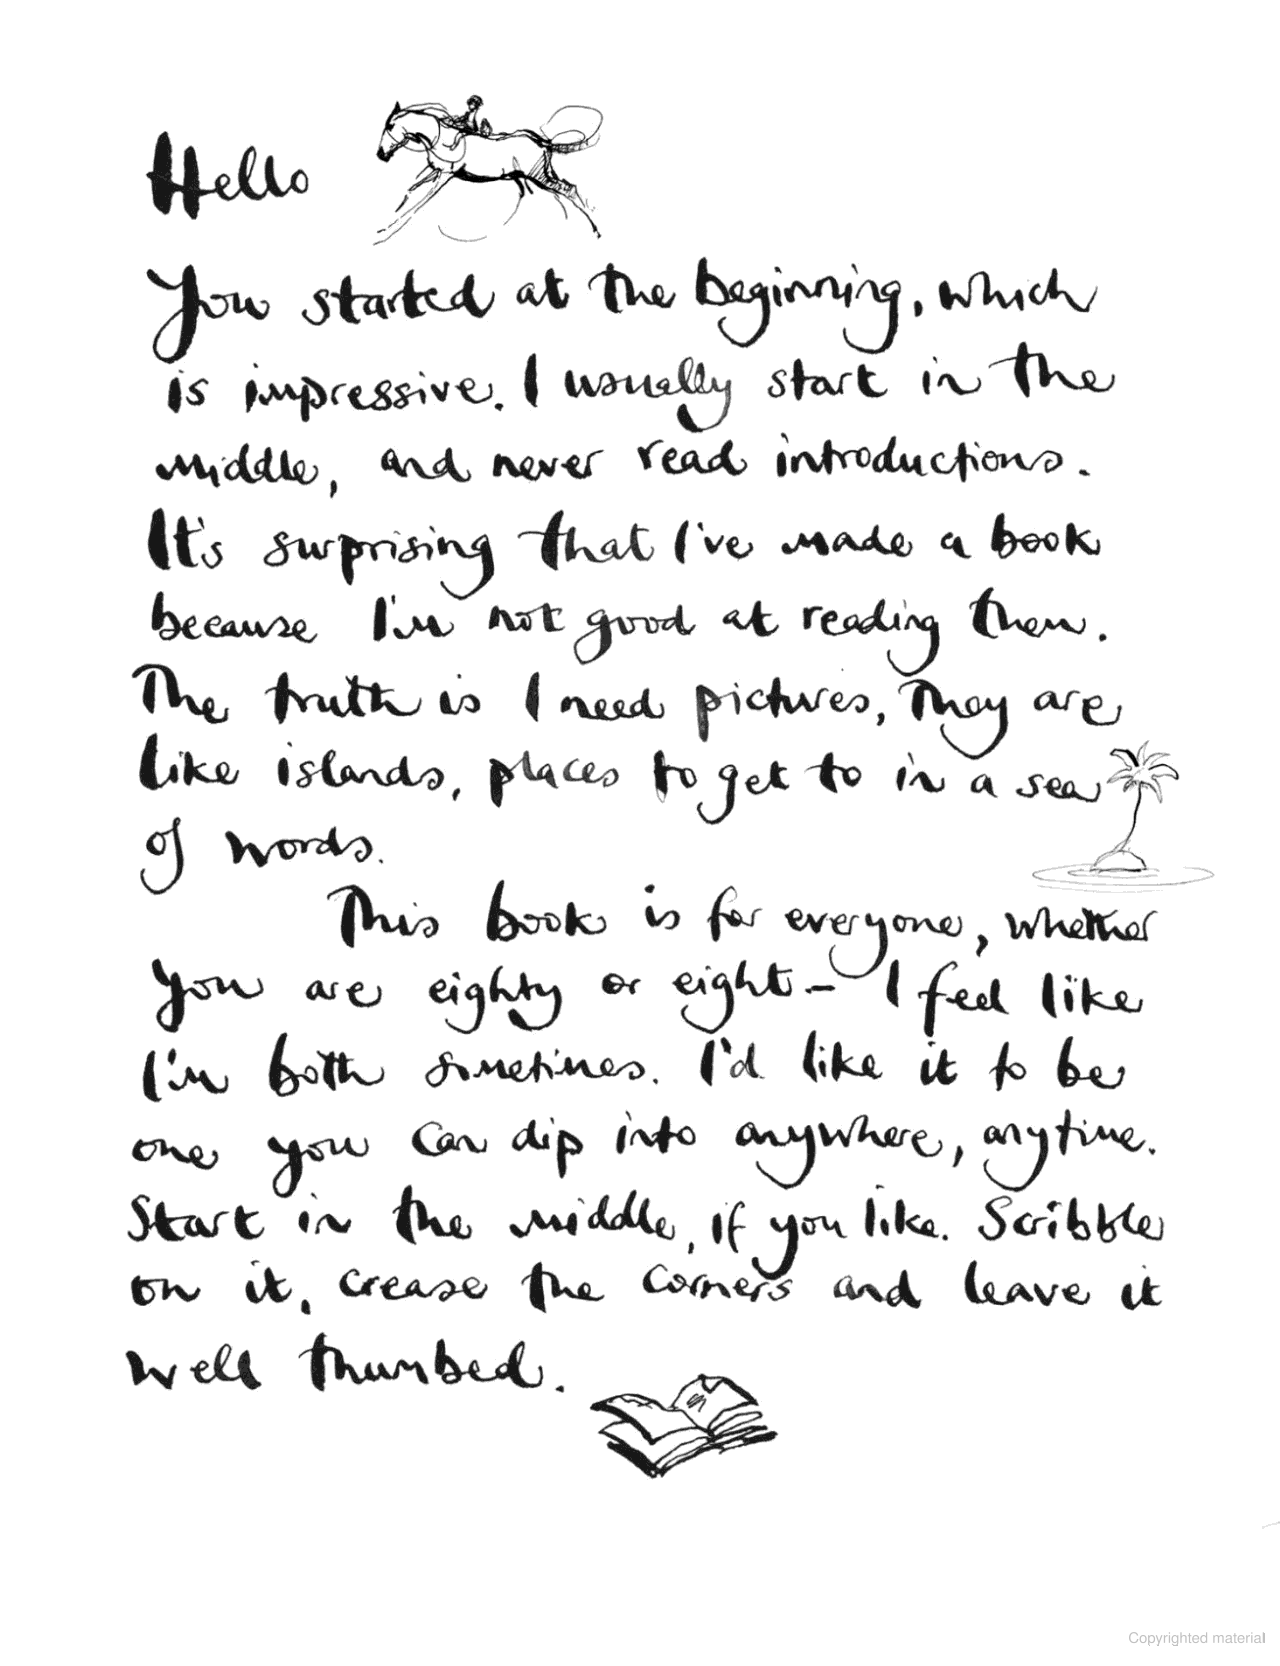 Hello
You started at the beginning, which
is impressive. I usually start in the
middle, and never read introductions.
It's surprising that I've made a book
because I'm not good at reading them.
The truth is I need pictures, They are
like islands, places to get to in a sea
of words.
This book is for everyone, whether
you are eighty or eight – I feel like
I'm both sometimes. I'd like it to be
one you can dip into anywhere, anytime.
Start in the middle, if you like. Scribble
on it, crease the corners and leave it
well thumbed.
Copyrighted material